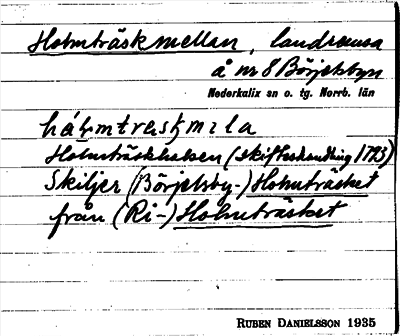 Holmträskmellan, landremsa
å nr 8 Börjelsbyn
Nederkalix sn o. tg. Norrb. län
Holmträskhalsen (skifteshandling 1793)
Skiljer (Börjelsby-) Holmträsket
från (Ri-) Holmträsket
RUBEN DANIELSSON 1935